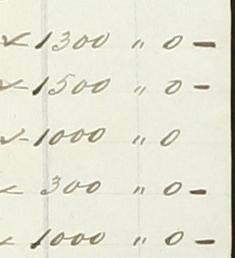 ✓ 1300 " 0 –
✓ 1500 " 0 –
✓ 1000 " 0
✓ 300 " 0 –
✓ 1000 " 0 –